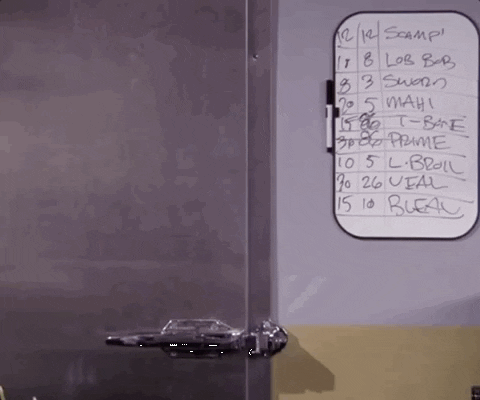 12 12 SCAMPI
11 8 LOB BOB
8 3 SWORD
20 5 MAHI
15 86 T-BONE
30 86 PRIME
10 5 L.BROIL
20 26 VEAL
15 10